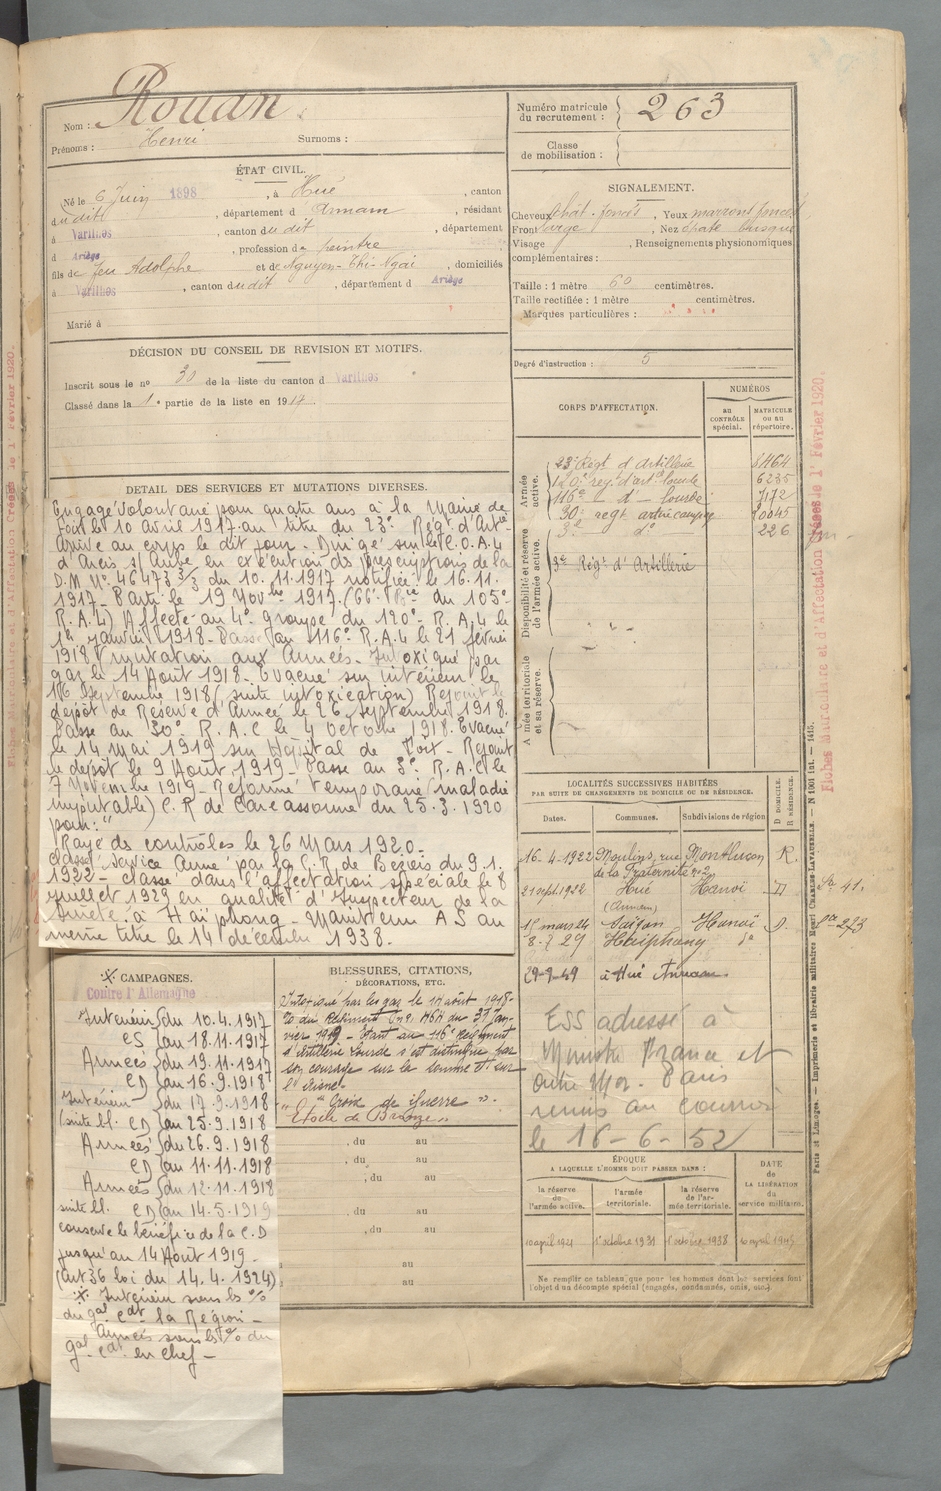 Nom : Rouan
Prénoms : Henri Surnoms :
Numéro matricule du recrutement : 263
Classe de mobilisation :
ÉTAT CIVIL.
Né le 6 Juin 1898, à Hué, canton
dudit, département d Annam, résidant
à Varilhes, canton dudit, département
d Ariège, profession de peintre
fils de feu Adolphe et de Nguyen-Thi-Ngai, domiciliés
à Varilhes, canton dudit, département d Ariège
Marié à
SIGNALEMENT.
Cheveux chât. foncés, Yeux marrons foncés
Front large, Nez épaté busqué
Visage , Renseignements physionomiques
complémentaires :
Taille : 1 mètre 60 centimètres.
Taille rectifiée : 1 mètre centimètres.
Marques particulières :
Degré d'instruction : 5
DÉCISION DU CONSEIL DE REVISION ET MOTIFS.
Inscrit sous le no 30 de la liste du canton d Varilhes
Classé dans la 1e partie de la liste en 1917.
DETAIL DES SERVICES ET MUTATIONS DIVERSES.
Engagé volontaire pour quatre ans à la Mairie de
Foix le 10 Avril 1917 au titre du 23e Régt d'Artie
Arrivé au corps le dit jour. Dirigé sur le C.O.A.L
d'Arcis s/ Aube en exécution des prescriptions de la
D.M No 46473 3/3 du 10.11.1917 notifiée le 16.11.
1917. Parti le 19 Novbre 1917. (66e Bie du 105e
R.A.L) Affecté au 4e groupe du 120e R.A.L le
1er janvier 1918. Passé au 116e R.A.L le 21 février
1918 Mutation aux Armées. Intoxiqué par
gaz le 14 Août 1918. Evacué sur intérieur le
16 Septembre 1918 (suite intoxication) Rejoint le
dépôt de Réserve d'Armée le 26 septembre 1918.
Passé au 30e R.A.C le 4 octobre 1918. Evacué
le 14 Mai 1919 sur Hôpital de Foix. Rejoint
le dépôt le 9 Août 1919. Passé au 3e R.A.C le
7 Novembre 1919. Réformé temporaire (maladie
imputable) C.R de Carcassonne du 25.3.1920
pour : "
Rayé des contrôles le 26 Mars 1920.
Classé Service Armé par la C.R de Béziers du 9.1.
1922. classé dans l'affectation spéciale le 8
juillet 1929 en qualité d'Inspecteur de la
Sureté à Haïphong. Maintenu A S au
même titre le 14 décembre 1938.
CORPS D'AFFECTATION.
NUMÉROS
au CONTRÔLE spécial.
MATRICULE ou au répertoire.
Armée active.
23e Régt d'Artillerie 8464
120e reg. d'artie lourde 6235
116e — d° — lourde 7172
30e regt artie campagne 10045
3e — d° — 226
Disponibilité et réserve de l'armée active.
3e Régt d'Artillerie
Armée territoriale et sa réserve.
Fiches Matriculaire et d'Affectation Créées le 1er Février 1920.
Fiches Matriculaire et d'Affectation Créées le 1er Février 1920.
LOCALITÉS SUCCESSIVES HABITÉES
PAR SUITE DE CHANGEMENTS DE DOMICILE OU DE RÉSIDENCE.
Dates. Communes. Subdivisions de région. D DOMICILE. R RÉSIDENCE.
16-4-1922 Moulins, rue Montluçon R.
de la Fraternité no 2
21 sept. 1922 Hué Hanoï D
(Annam)
1er mars 24 Saïgon Hanoï D.
8-7 29 Haïphong d°
29-9-49 à Hué Annam
ESS adressé à
Ministre France et
Outre Mer. Paris
remis au courrier
le 16-6-52
CAMPAGNES.
Contre l'Allemagne
Intérieur du 10.4.1917
CS au 18.11.1917
Armées du 19.11.1917
CD au 16.9.1918
Intérieur du 17.9.1918
(suite bl. CD au 25.9.1918
Armées du 26.9.1918
CD au 11.11.1918
Armées du 12.11.1918
suite bl. CD au 14-5-1919
conserve le bénéfice de la C.D
jusqu'au 14 Août 1919.
(Art 36 loi du 14.4.1924)
Intérieur sous les o/o
du gal cdt la Région.
Armées sous les o/o du
gal cdt en chef.
BLESSURES, CITATIONS,
DÉCORATIONS, ETC.
Intoxiqué par les gaz le 14 août 1918.
O du Régiment no 464 du 31 Jan-
vier 1919. Etant au 116e Régiment
d'Artillerie Lourde s'est distingué par
son courage sur la Somme et sur
l'Aisne.
" Croix de Guerre "
Etoile de Bronze "
, du au
, du au
, du au
, du au
, du au
au
au
ÉPOQUE
A LAQUELLE L'HOMME DOIT PASSER DANS :
la réserve de l'armée active.
l'armée territoriale.
la réserve de l'armée territoriale.
DATE de LA LIBÉRATION du service militaire.
10 avril 1921 1er octobre 1931 1er octobre 1938 10 avril 1945
Ne remplir ce tableau que pour les hommes dont les services font
l'objet d'un décompte spécial (engagés, condamnés, omis, etc.).
Paris et Limoges. — Imprimerie et librairie militaires Henri CHARLES-LAVAUZELLE. — N 1001 int. — 1415.